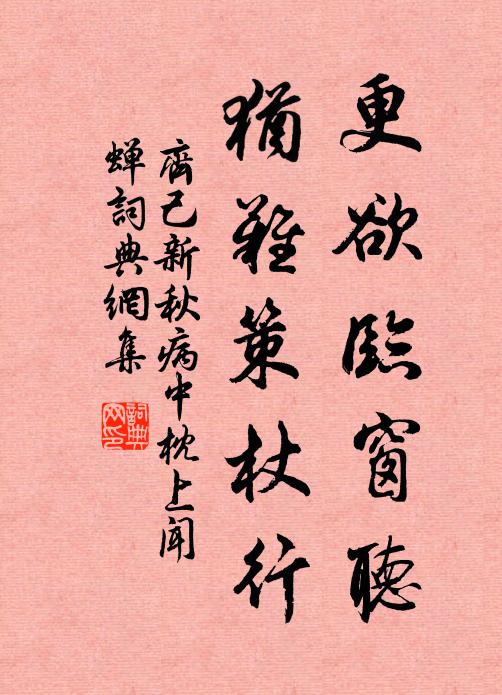 更欲臨窗聽
猶難策杖行
齊己新秋病中枕上聞
蟬詞典網集
詞典
网印